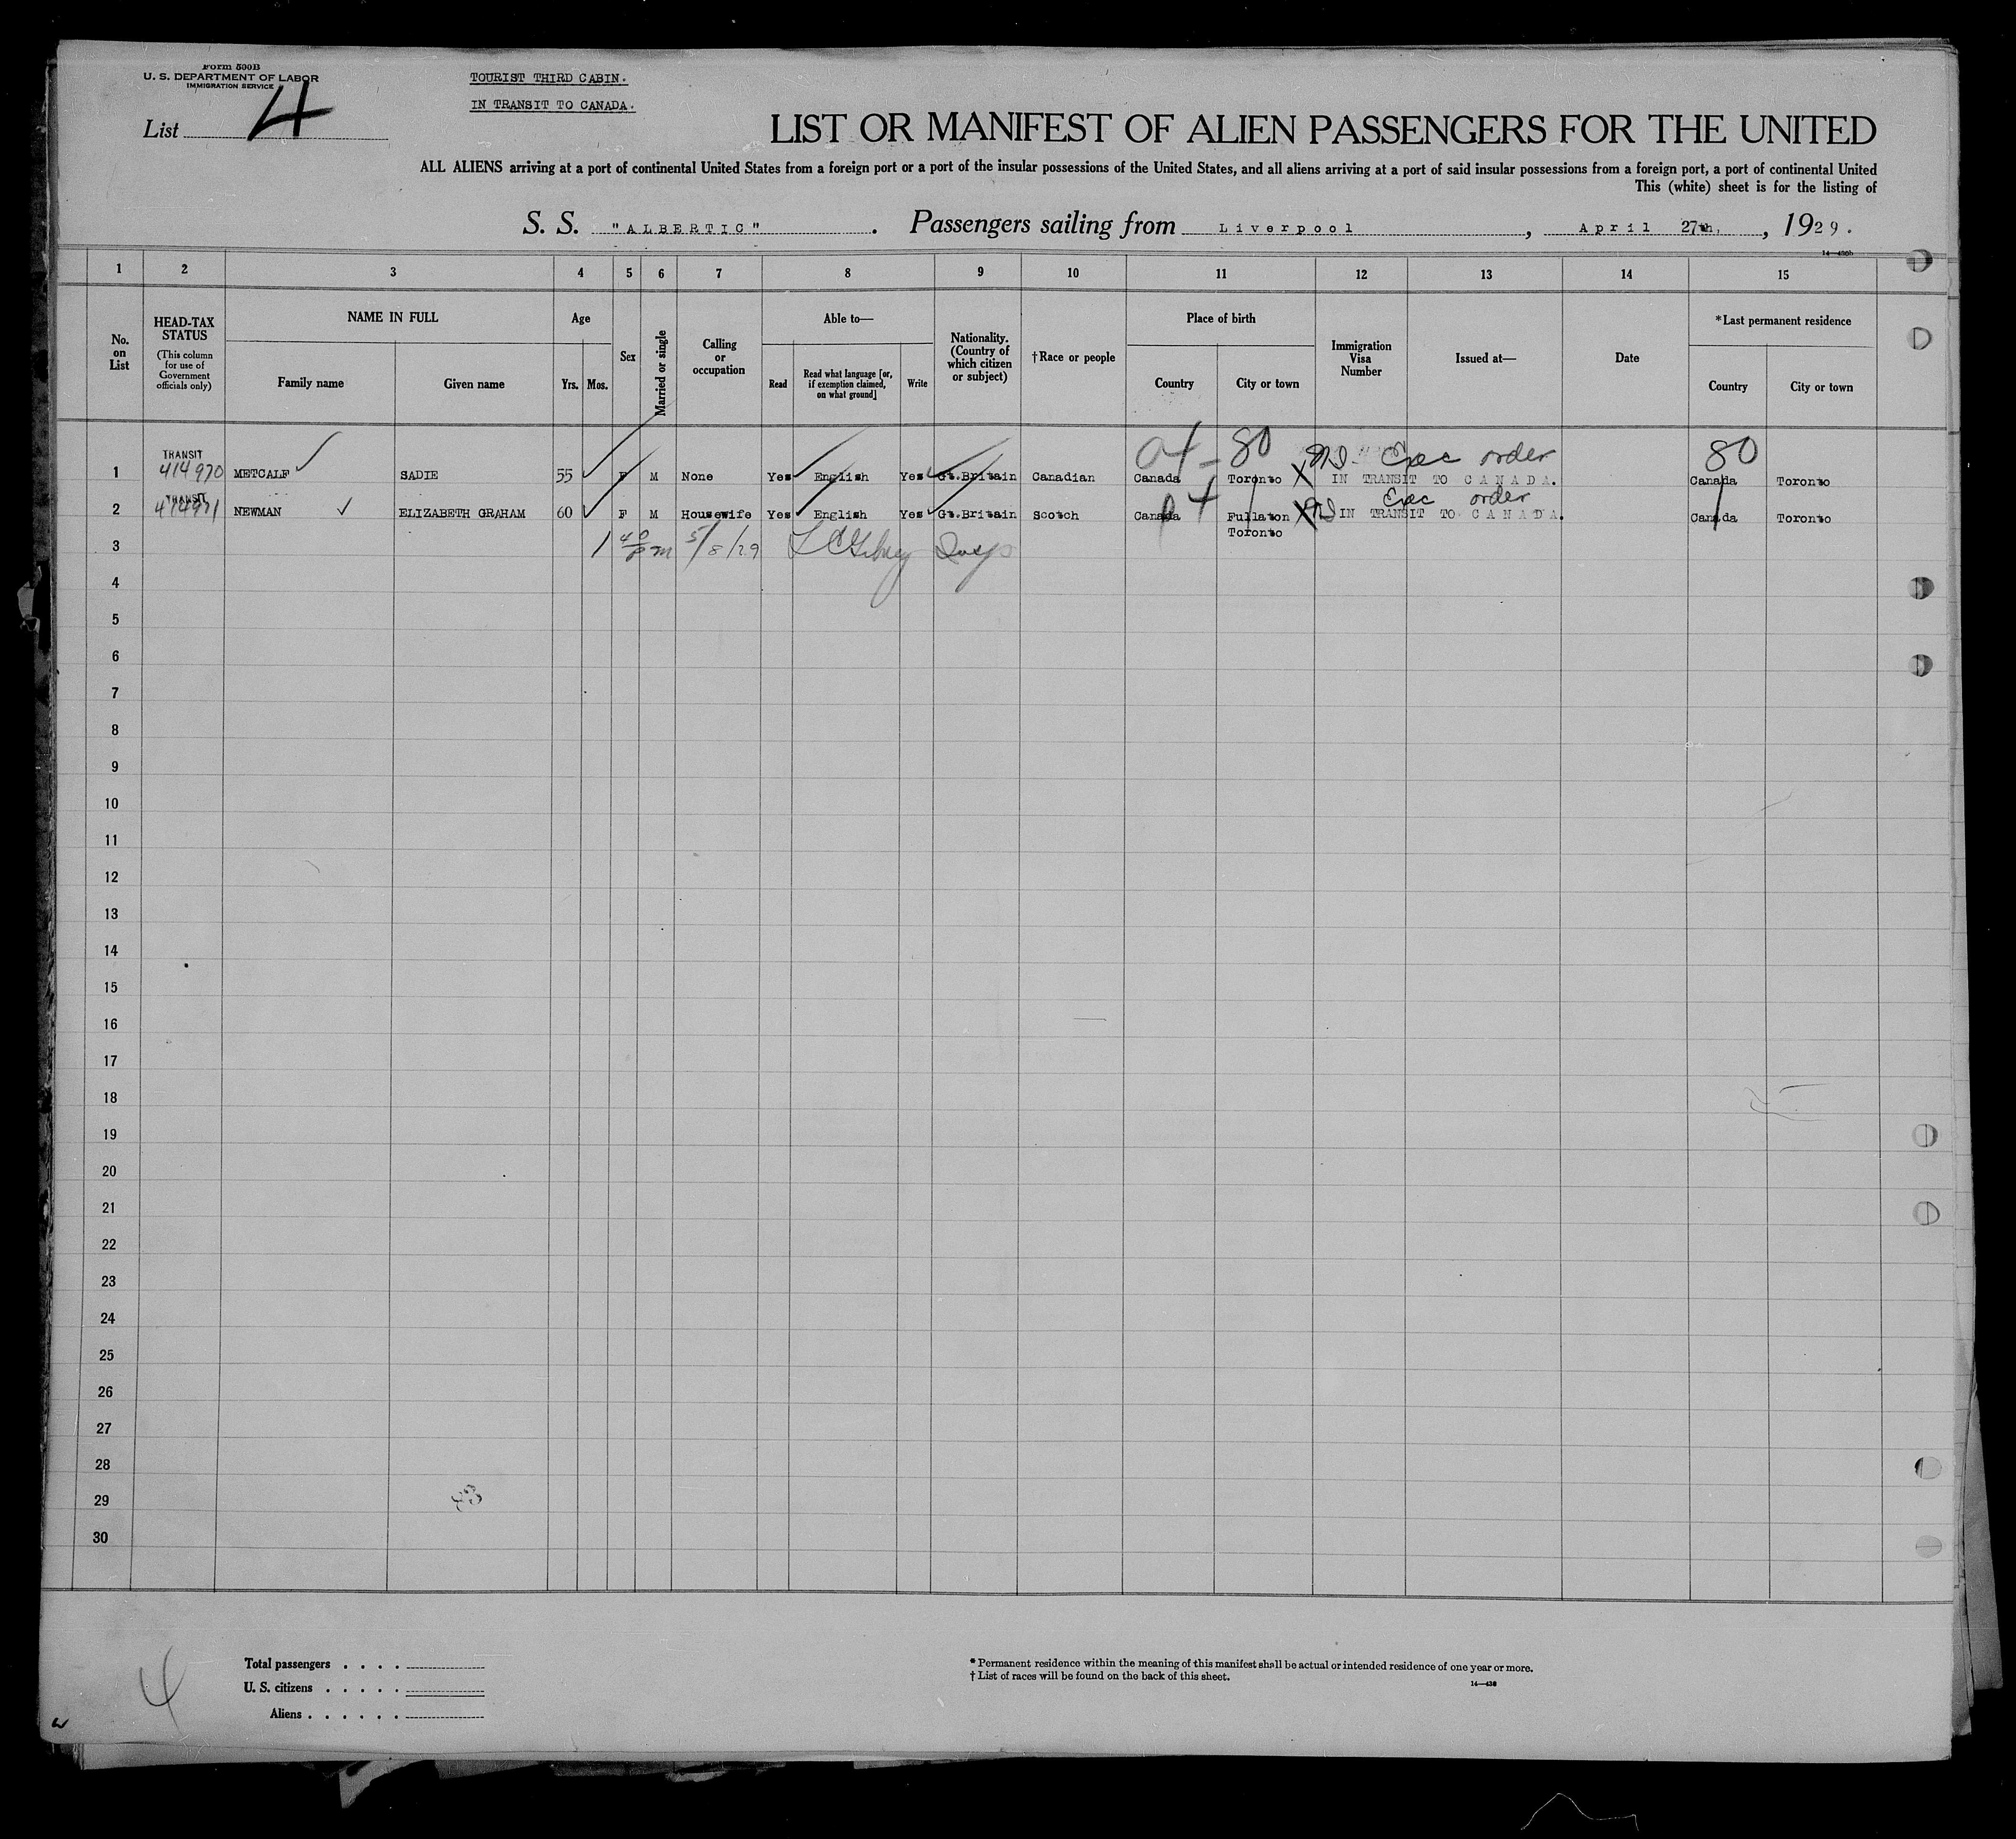 Form 500B
U. S. DEPARTMENT OF LABOR
IMMIGRATION SERVICE
TOURIST THIRD CABIN.
IN TRANSIT TO CANADA.
List 4
LIST OR MANIFEST OF ALIEN PASSENGERS FOR THE UNITED
ALL ALIENS arriving at a port of continental United States from a foreign port or a port of the insular possessions of the United States, and all aliens arriving at a port of said insular possessions from a foreign port, a port of continental United
This (white) sheet is for the listing of
S. S. "ALBERTIC". Passengers sailing from Liverpool, April 27th, 1929.
1 2 3 4 5 6 7 8 9 10 11 12 13 14 15
No. on List
HEAD-TAX STATUS
(This column for use of Government officials only)
NAME IN FULL
Family name
Given name
Age
Yrs. Mos.
Sex
Married or single
Calling or occupation
Able to—
Read
Read what language [or, if exemption claimed, on what ground]
Write
Nationality. (Country of which citizen or subject)
†Race or people
Place of birth
Country
City or town
Immigration Visa Number
Issued at—
Date
*Last permanent residence
Country
City or town
04-80 Exec order 80
1 TRANSIT 414970 METCALF SADIE 55 F M None Yes English Yes Gt.Britain Canadian Canada Toronto X IN TRANSIT TO CANADA. Canada Toronto
04 Exec order
2 TRANSIT 414971 NEWMAN ELIZABETH GRAHAM 60 F M Housewife Yes English Yes Gt.Britain Scotch Canada Fullaton X IN TRANSIT TO CANADA. Canada Toronto
Toronto
3 1 40 Pm 5/8/29 Insp
4
5
6
7
8
9
10
11
12
13
14
15
16
17
18
19
20
21
22
23
24
25
26
27
28
29
30
4
Total passengers . . . .
U. S. citizens . . . . .
Aliens . . . . . .
* Permanent residence within the meaning of this manifest shall be actual or intended residence of one year or more.
† List of races will be found on the back of this sheet.
14—438